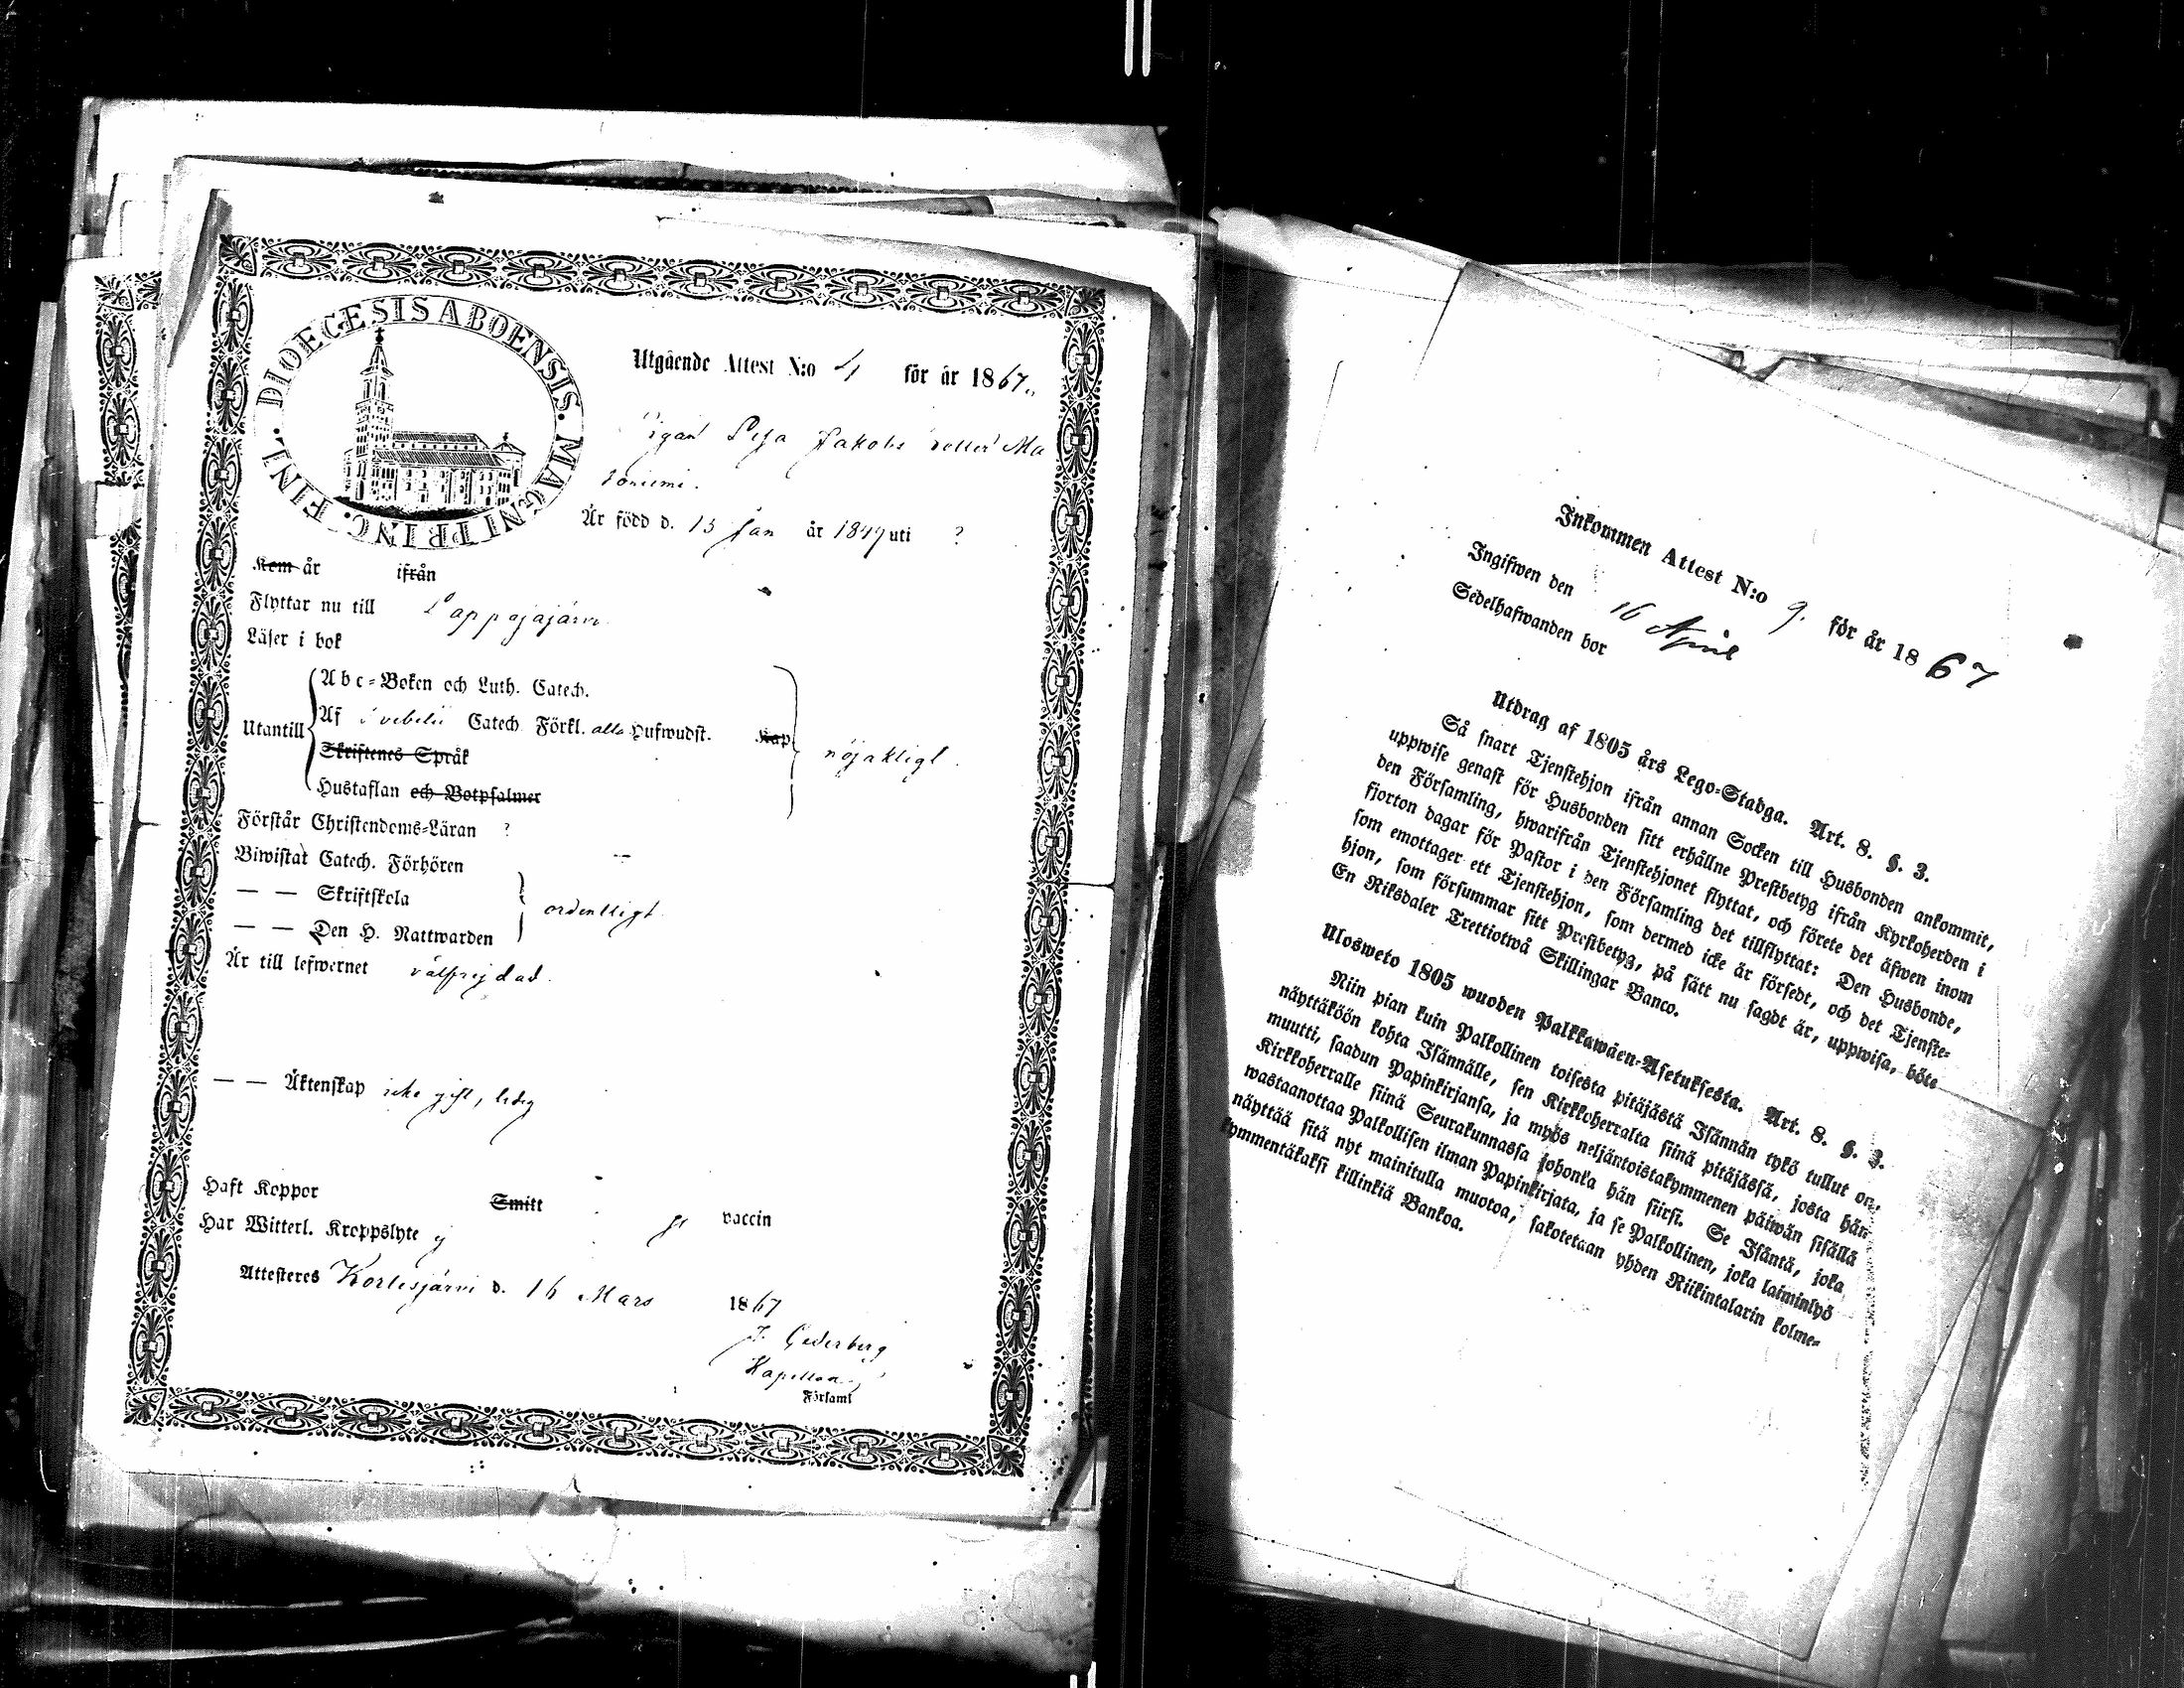 DIOECESIS ABOENSIS. MAGNI PRINC. FINL.
Utgående Attest N:o 4 för år 1867.
Pigan Lisa Jakobs dotter Ma
soniemi.
Är född d. 13 Jan år 1847 uti ?
Kom år ifrån
Flyttar nu till Lappajärvi
Läser i bok
Utantill
Abc=Boken och Luth. Catech.
Af Svebelii Catech Förkl. alla Hufwudst. Kap
Skriftenes Språk
Hustaflan och Botpsalmer
nöjaktligt.
Förstår Christendoms=Läran ?
Biwistat Catech. Förhören
— — Skriftskola
— — Den H. Nattwarden
ordentligt
Är till lefwernet välfrejdad.
— — Äktenskap icke gift, ledig
Haft Koppor Smitt vaccin
Har Witterl. Kroppslyte ej
Attesteres Kortesjärvi d. 16 Mars 1867
J. Cederberg
Kapellan
Församl
Inkommen Attest N:o 9. för år 1867
Ingifwen den 16 April
Sedelhafwanden bor
Utdrag af 1805 års Lego=Stadga. Art. 8. §. 3.
Så snart Tjenstehjon ifrån annan Socken till Husbonden ankommit,
uppwise genast för Husbonden sitt erhållne Prestbetyg ifrån Kyrkoherden i
den Församling, hwarifrån Tjenstehjonet flyttat, och förete det äfwen inom
fjorton dagar för Pastor i den Församling det tillflyttat: Den Husbonde,
som emottager ett Tjenstehjon, som dermed icke är försedt, och det Tjenste=
hjon, som försummar sitt Prestbetyg, på sätt nu sagdt är, uppwisa, böte
En Riksdaler Trettiotwå Skillingar Banco.
Ulosweto 1805 wuoden Palkkawäen=Asetuksesta. Art. 8. §. 3.
Niin pian kuin Palkollinen toisesta pitäjästä Isännän tykö tullut on,
näyttäköön kohta Isännälle, sen Kirkkoherralta siinä pitäjässä, josta hän
muutti, saadun Papinkirjansa, ja myös neljäntoistakymmenen päiwän sisällä
Kirkkoherralle siinä Seurakunnassa johonka hän siirsi. Se Isäntä, joka
wastaanottaa Palkollisen ilman Papinkirjata, ja se Palkollinen, joka laiminlyö
näyttää sitä nyt mainitulla muotoa, sakotetaan yhden Riikintalarin kolme=
kymmentäkaksi killinkiä Bankoa.